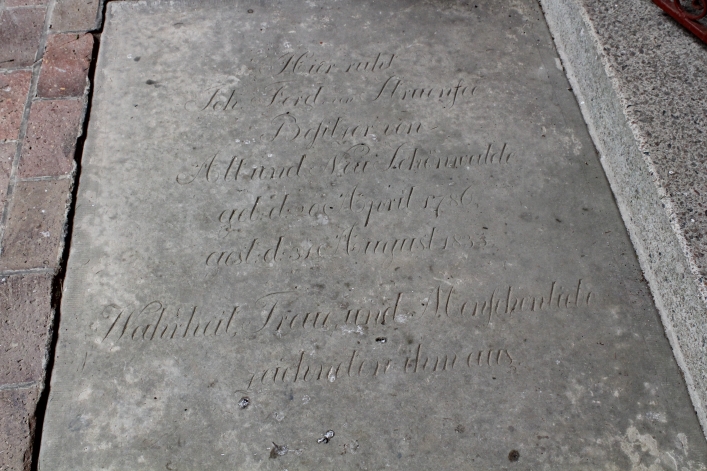 Hier ruht
Joh. Ferd. von Struensee
Besitzer von
Alt und Neu Schönwalde
geb: d: 10t April 1786.
gest: d: 31t August 1833.
Wahrheit, Treue und Menschenliebe
zeichneten ihm aus.